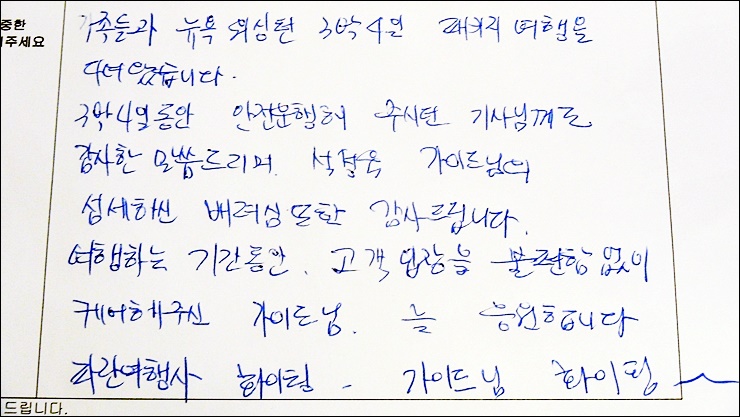 중한
해주세요
가족들과 뉴욕 워싱턴 3박4일 패키지 여행을
다녀 왔습니다.
3박4일동안 안전운행해 주시던 기사님께도
감사한 말씀드리며. 가이드님의
섬세하신 배려심 또한 감사드립니다.
여행하는 기간동안. 고객 입장을 불편함 없이
케어해주신 가이드님. 늘 응원합니다
파란여행사 화이팅 - 가이드님 화이팅
드립니다.